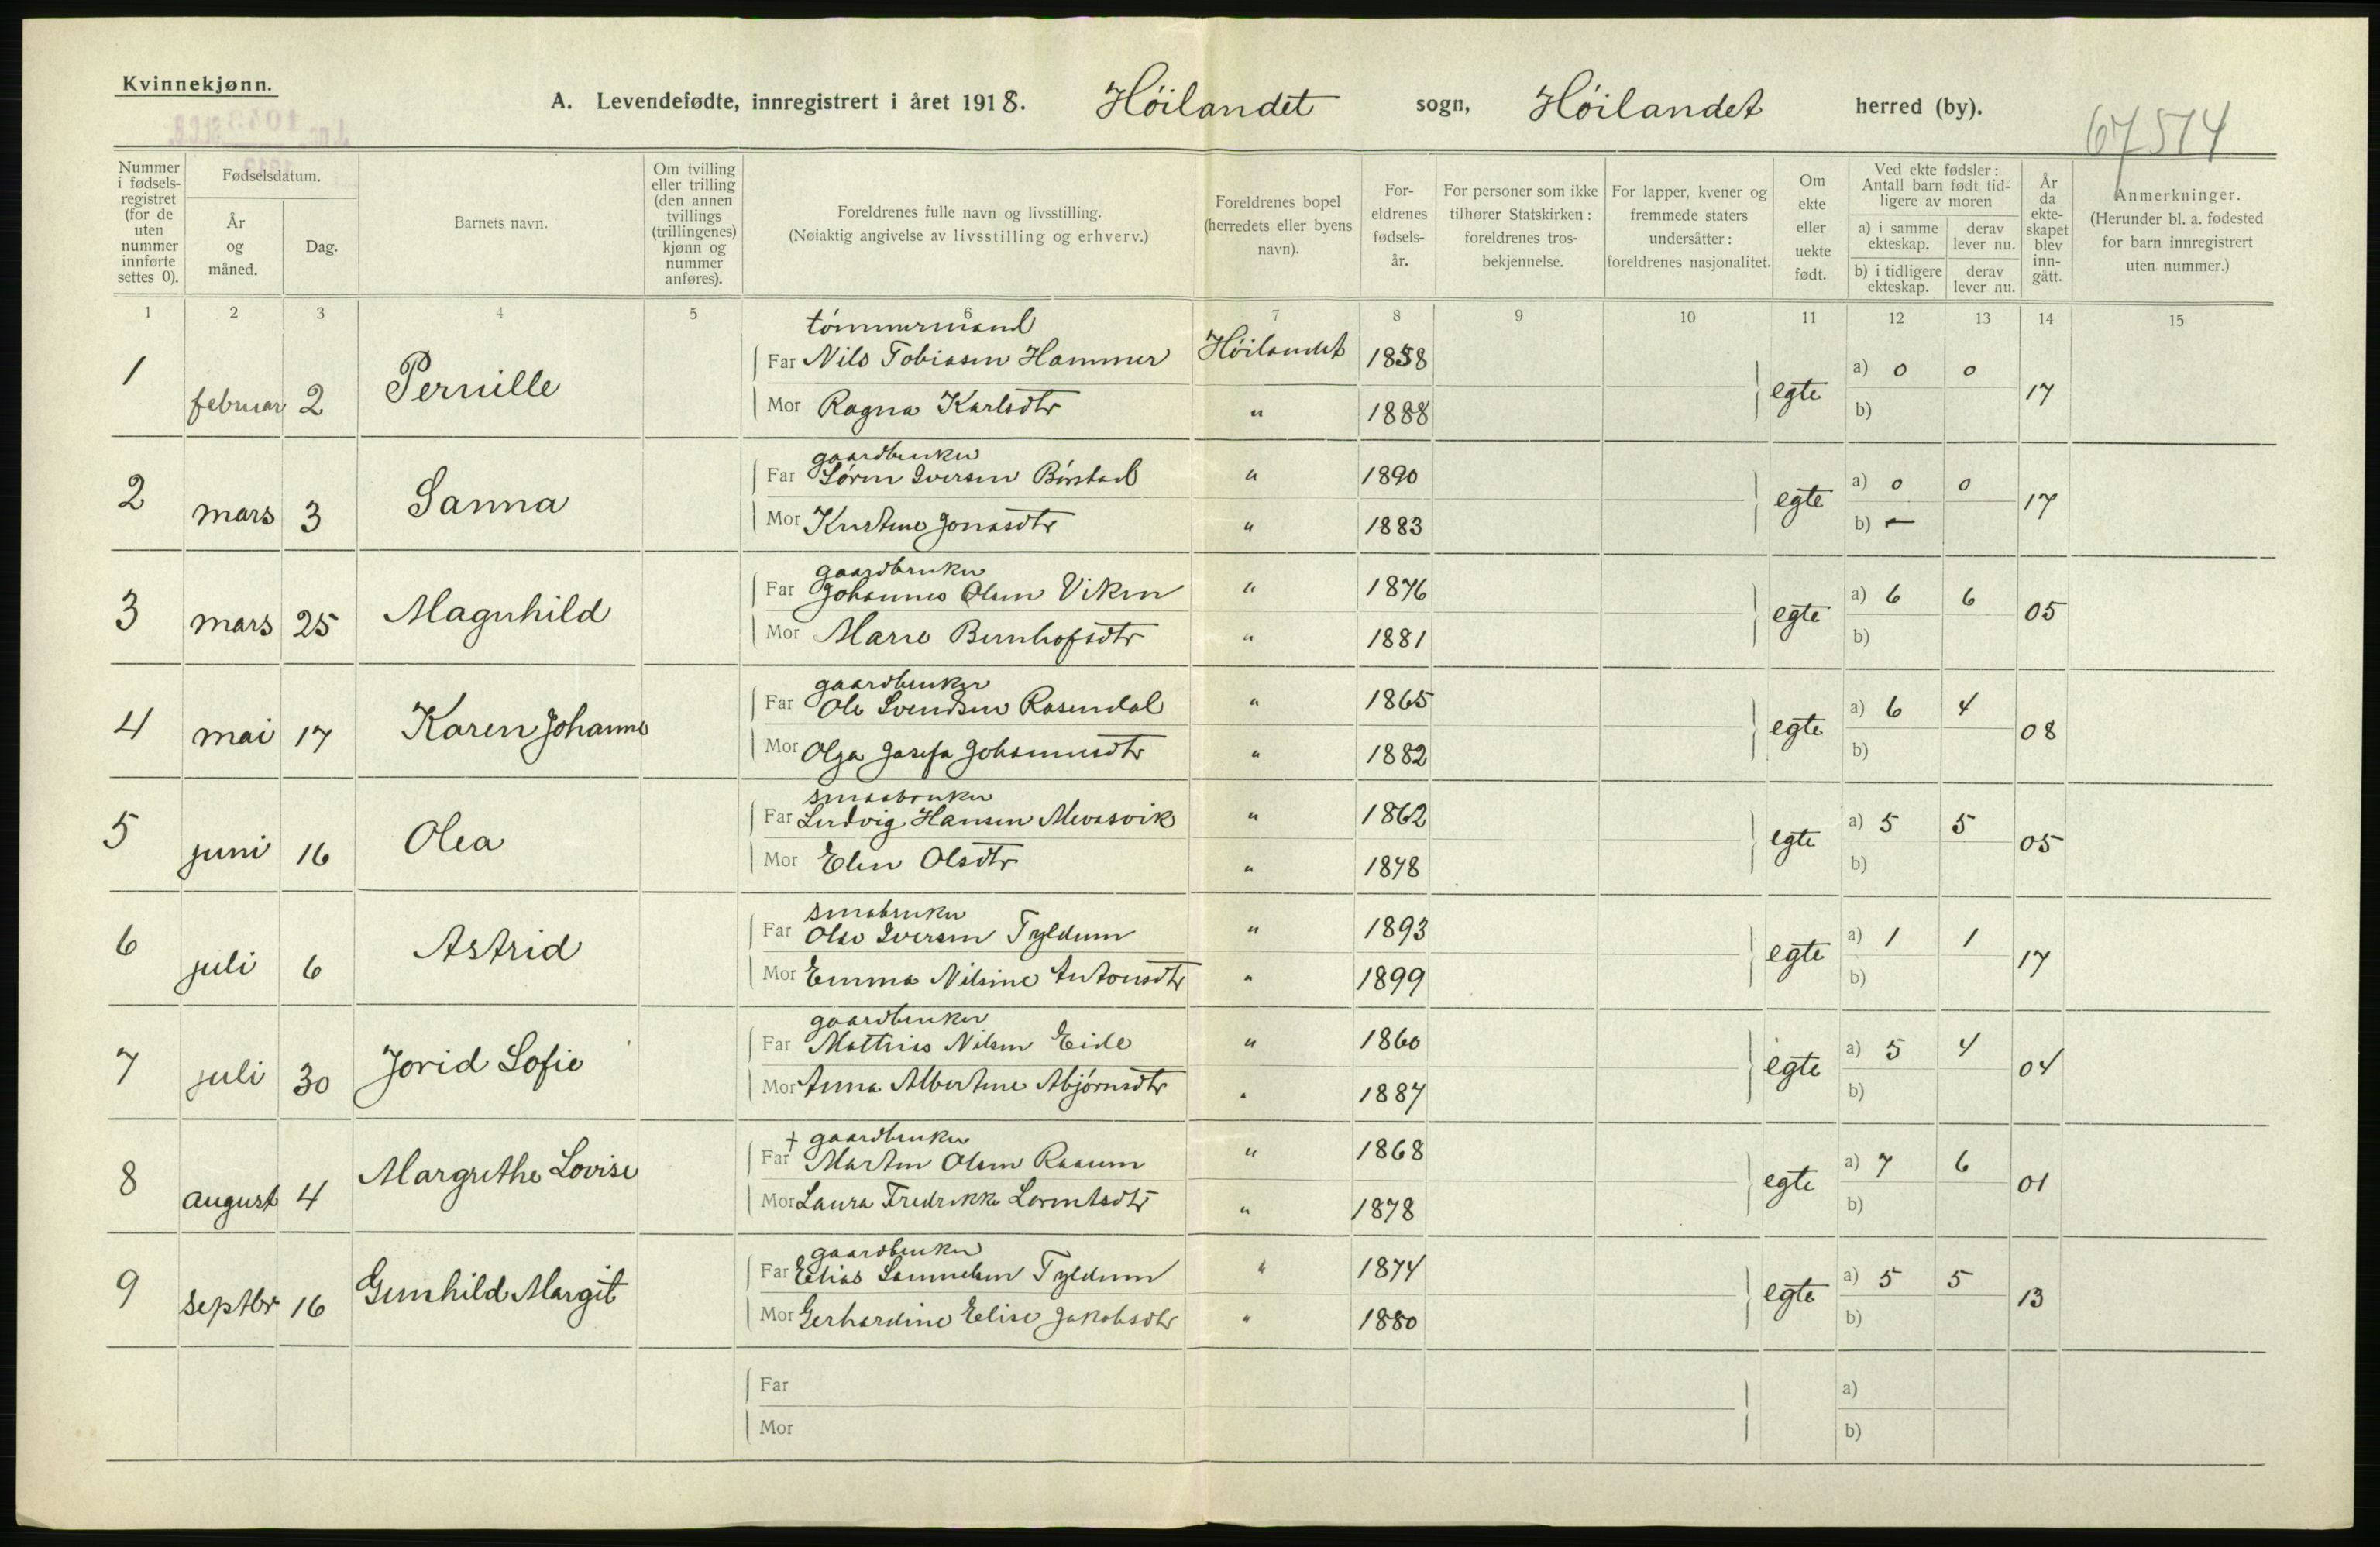 Kvinnekjønn.
A. Levendefødte, innregistrert i året 1918. Höilandet sogn, Höilandet herred (by).
67514
Nummer i fødsels-registret (for de uten nummer innførte settes 0).
Fødselsdatum.
År og måned.
Dag.
Barnets navn.
Om tvilling eller trilling (den annen tvillings (trillingenes) kjønn og nummer anføres).
Foreldrenes fulle navn og livsstilling.
(Nøiaktig angivelse av livsstilling og erhverv.)
Foreldrenes bopel (herredets eller byens navn).
For-eldrenes fødsels-år.
For personer som ikke tilhører Statskirken: foreldrenes tros-bekjennelse.
For lapper, kvener og fremmede staters undersåtter: foreldrenes nasjonalitet.
Om ekte eller uekte født.
Ved ekte fødsler: Antall barn født tid-ligere av moren
a) i samme ekteskap.
derav lever nu.
b) i tidligere ekteskap.
derav lever nu.
År da ekte-skapet blev inn-gått.
Anmerkninger.
(Herunder bl. a. fødested for barn innregistrert uten nummer.)
1 2 3 4 5 6 7 8 9 10 11 12 13 14 15
tömmermand
1 februar 2 Pernille Far Nils Tobiasen Hammer Höilandet 1858 egte a) 0 0 17
Mor Ragna Karlsdtr " 1888 b)
gaardbruker
2 mars 3 Sanna Far Sören Iversen Börstad " 1890 egte a) 0 0 17
Mor Kristine Jonasdtr " 1883 b) —
gaardbruker
3 mars 25 Magnhild Far Johannes Olsen Viken " 1876 egte a) 6 6 05
Mor Marie Bernhofsdtr " 1881 b)
gaardbruker
4 mai 17 Karen Johanne Far Ole Svendsen Rosendal " 1865 egte a) 6 4 08
Mor Olga Josefa Johannesdtr " 1882 b)
smaabruker
5 juni 16 Olea Far Ludvig Hansen Mevasvik " 1862 egte a) 5 5 05
Mor Elen Olsdtr " 1878 b)
smabruker
6 juli 6 Astrid Far Olav Iversen Tyldum " 1893 egte a) 1 1 17
Mor Emma Nilsine Antonsdtr " 1899 b)
gaardbruker
7 juli 30 Jorid Sofie Far Mathias Nilsen Eide " 1860 egte a) 5 4 04
Mor Anna Albertine Abjörnsdtr " 1887 b)
+ gaardbruker
8 august 4 Margrethe Lovise Far Martin Olsen Raaum " 1868 egte a) 7 6 01
Mor Laura Fredrikke Lorentsdtr " 1878 b)
gaardbruker
9 septbr 16 Gunhild Margit Far Elias Samuelsen Tyldum " 1874 egte a) 5 5 13
Mor Gerhardine Elise Jakobsdtr " 1880 b)
Far a)
Mor b)